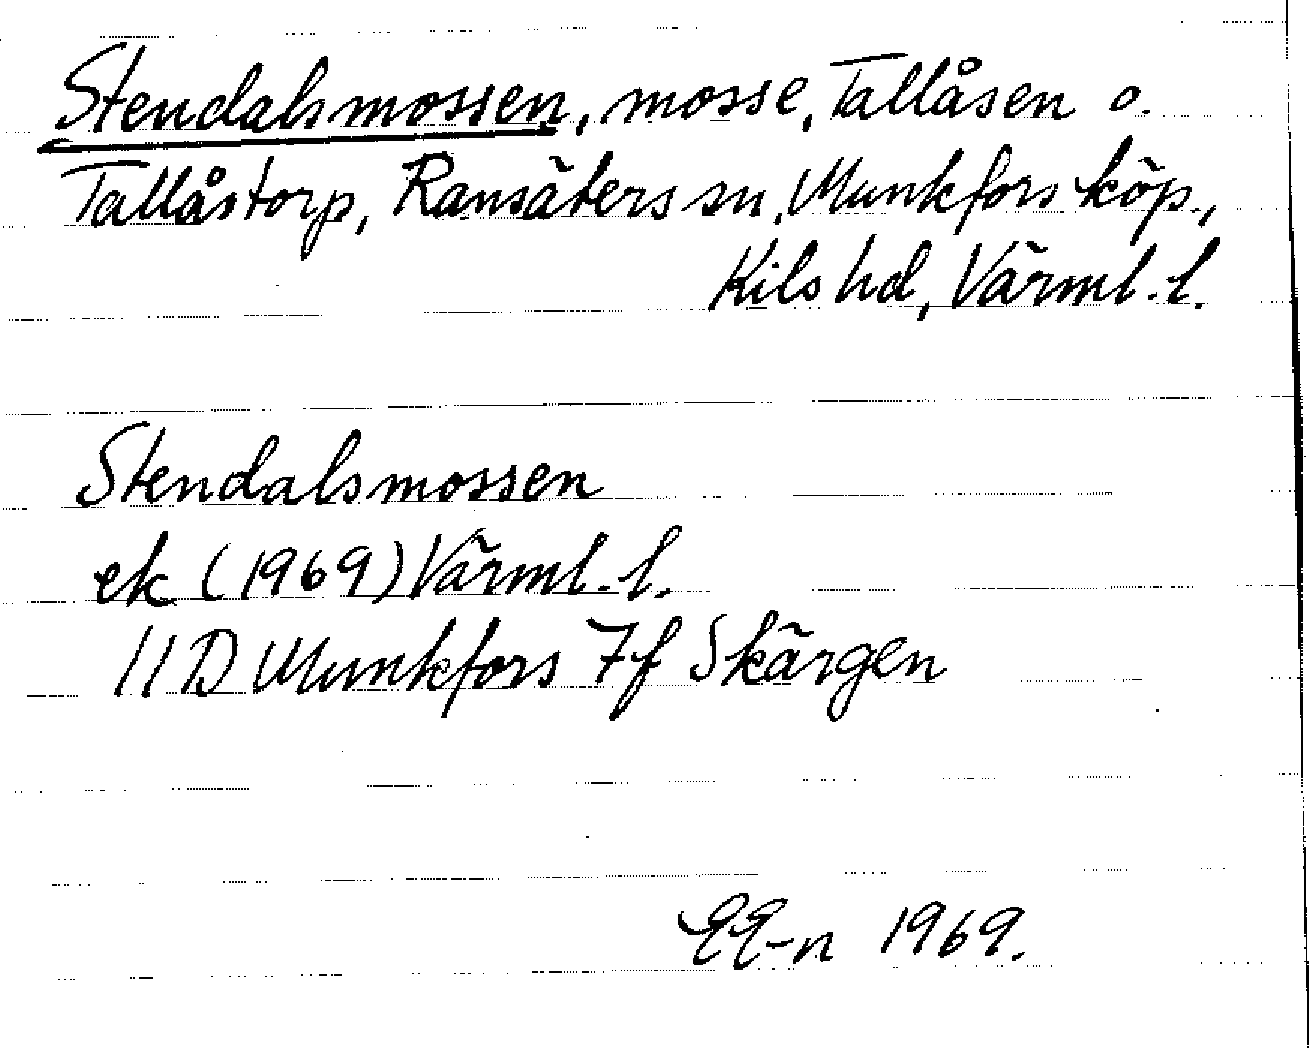 Stendalsmossen, mosse, Tallåsen o.
Tallåstorp, Ransäters sn, Munkfors köp.,
Kils hd, Värml. l.
Stendalsmossen
ek (1969) Värml. l.
11D Munkfors 7f Skärgen
EE-n 1969.